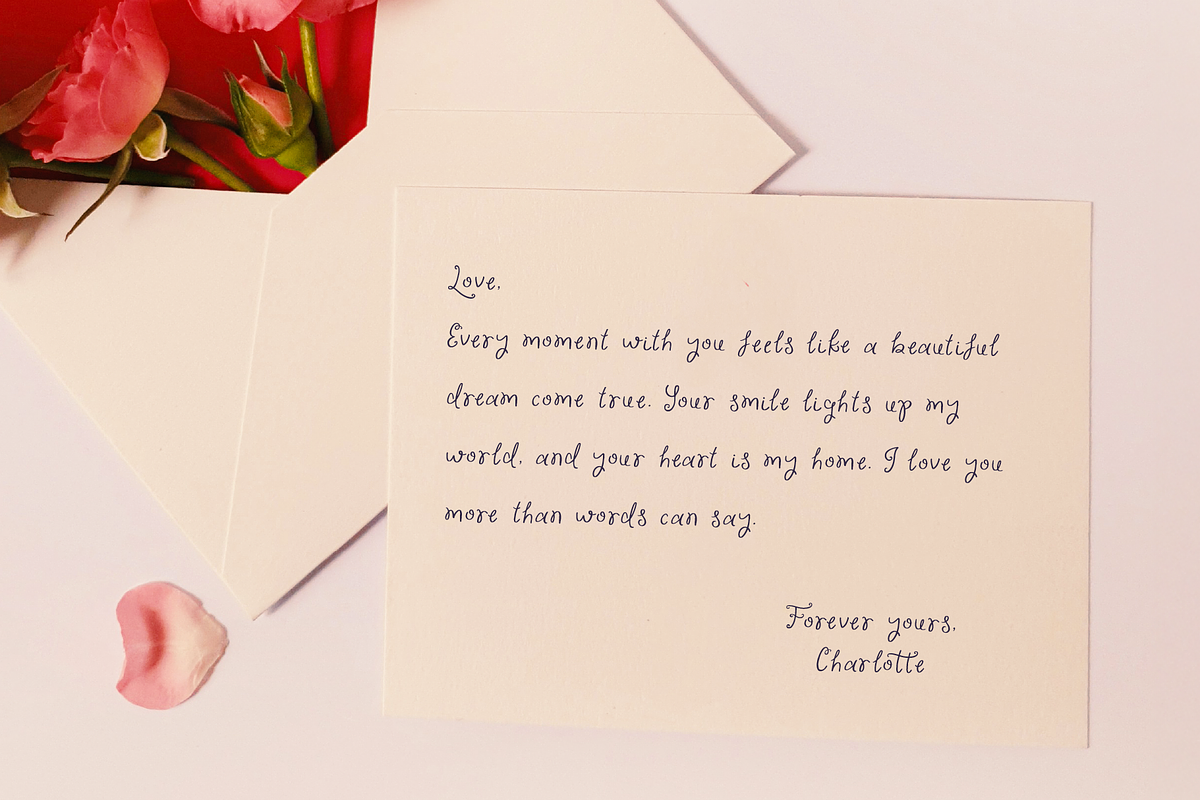 Love,
Every moment with you feels like a beautiful
dream come true. Your smile lights up my
world, and your heart is my home. I love you
more than words can say.
Forever yours,
Charlotte